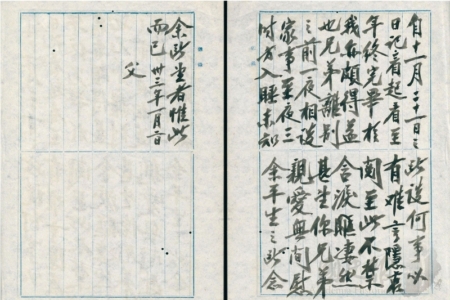 自十一月二十一日之
日記看起看至
年終完畢於
我亦頗得益
也兄弟離別
之前一夜相談
家事至夜三
時方入睡未知
所談何事必
有難言隱衷
閱至此不禁
含淚 淒然
甚望你兄弟
親愛無間慰
余平生之所念
余所望者惟此
而已 卅三年一月二日
父